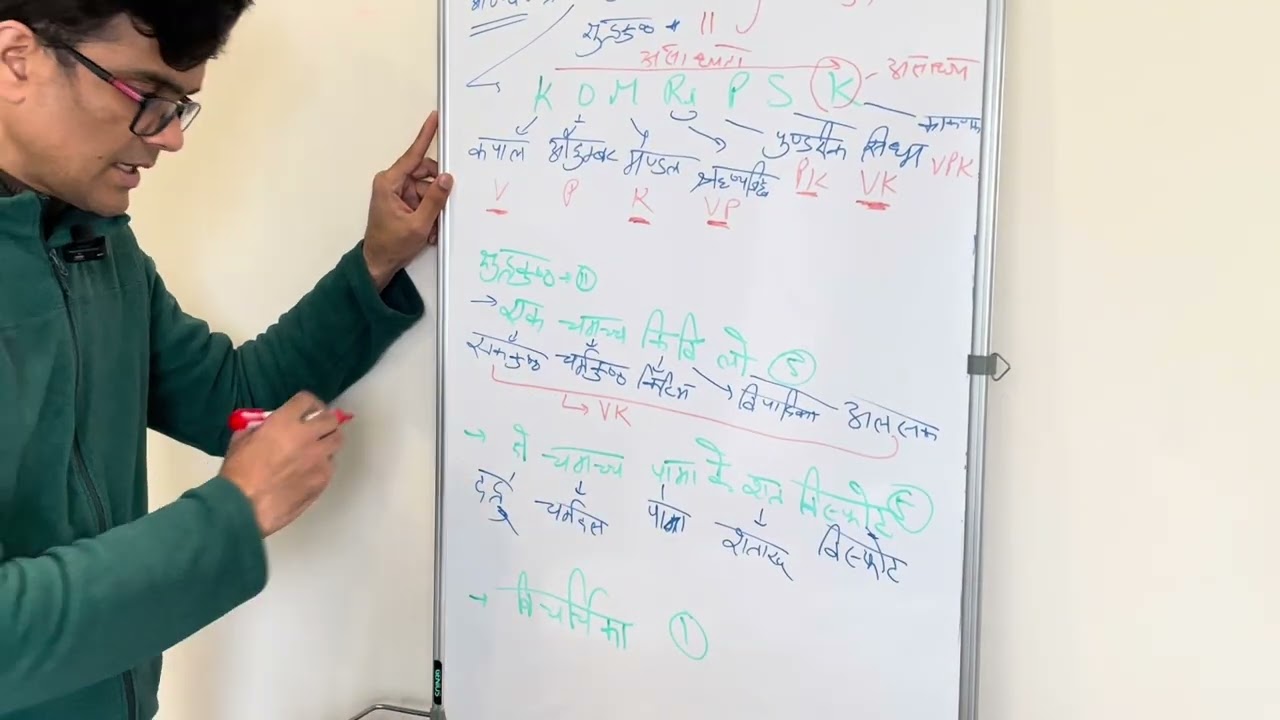 क्षुद्रकुष्ठ → 11
असाध्यता
K O M Rj P S K - असाध्य
काकणक
कपाल औदुम्बर मण्डल ऋष्यजिह्व पुण्डरीक सिध्म
V P K VP PK VK VPK
क्षुद्रकुष्ठ → 11
→ एक चमच्च किवि लो 5
एककुष्ठ चर्मकुष्ठ किटिभ विपादिका अलसक
↳ VK
→ दो चमच्च पामा के शत विस्फोट 5
दद्रु चर्मदल पामा शतारू विस्फोट
→ विचर्चिका 1
GENIUS